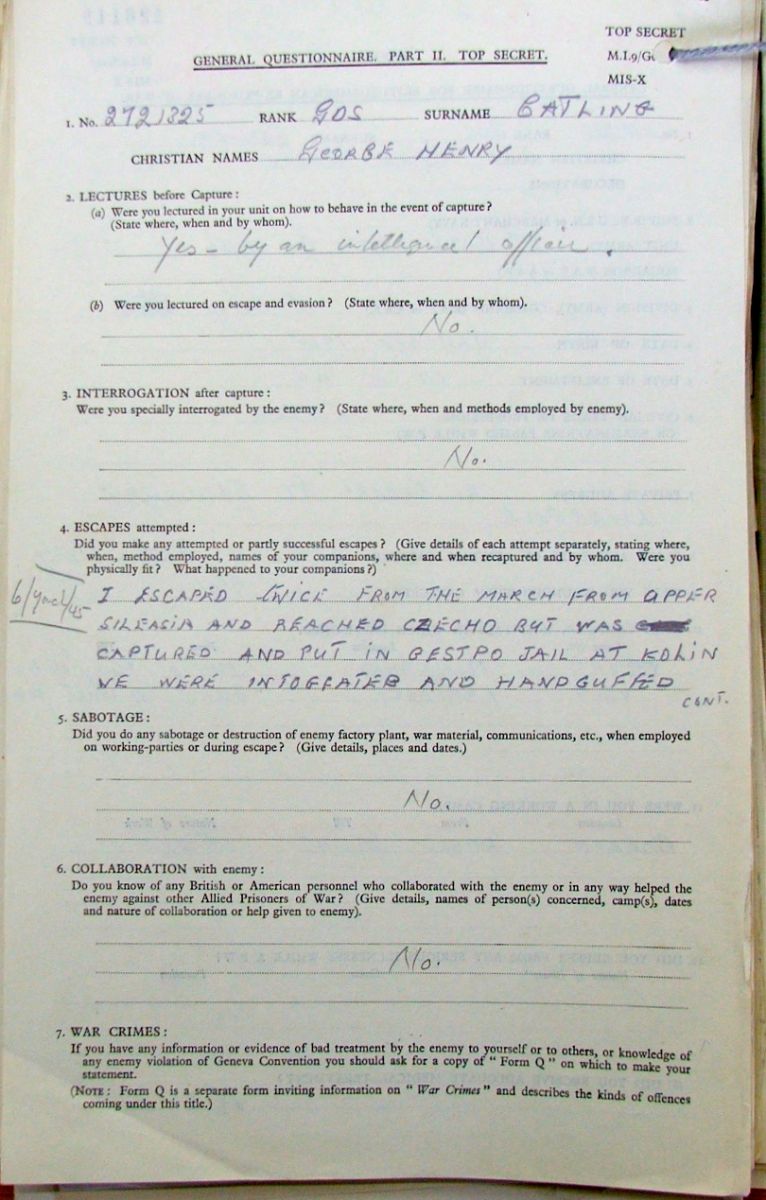 TOP SECRET
GENERAL QUESTIONNAIRE. PART II. TOP SECRET.
M.I.9/G
MIS-X
1. No. 2721325 RANK GDS SURNAME CATLING
CHRISTIAN NAMES GEORGE HENRY
2. LECTURES before Capture :
(a) Were you lectured in your unit on how to behave in the event of capture ?
(State where, when and by whom).
Yes – by an
(b) Were you lectured on escape and evasion ? (State where, when and by whom).
No.
3. INTERROGATION after capture :
Were you specially interrogated by the enemy ? (State where, when and methods employed by enemy).
No.
4. ESCAPES attempted :
Did you make any attempted or partly successful escapes ? (Give details of each attempt separately, stating where,
when, method employed, names of your companions, where and when recaptured and by whom. Were you
physically fit ? What happened to your companions ?)
I ESCAPED TWICE FROM THE MARCH FROM UPPER
SILEASIA AND REACHED CZECHO BUT WAS
CAPTURED AND PUT IN GESTPO JAIL AT KOLIN
WE WERE INTOGRATED AND HANDCUFFED
CONT.
5. SABOTAGE :
Did you do any sabotage or destruction of enemy factory plant, war material, communications, etc., when employed
on working-parties or during escape ? (Give details, places and dates.)
No.
6. COLLABORATION with enemy :
Do you know of any British or American personnel who collaborated with the enemy or in any way helped the
enemy against other Allied Prisoners of War ? (Give details, names of person(s) concerned, camp(s), dates
and nature of collaboration or help given to enemy).
No.
7. WAR CRIMES :
If you have any information or evidence of bad treatment by the enemy to yourself or to others, or knowledge of
any enemy violation of Geneva Convention you should ask for a copy of " Form Q " on which to make your
statement.
(NOTE : Form Q is a separate form inviting information on " War Crimes " and describes the kinds of offences
coming under this title.)